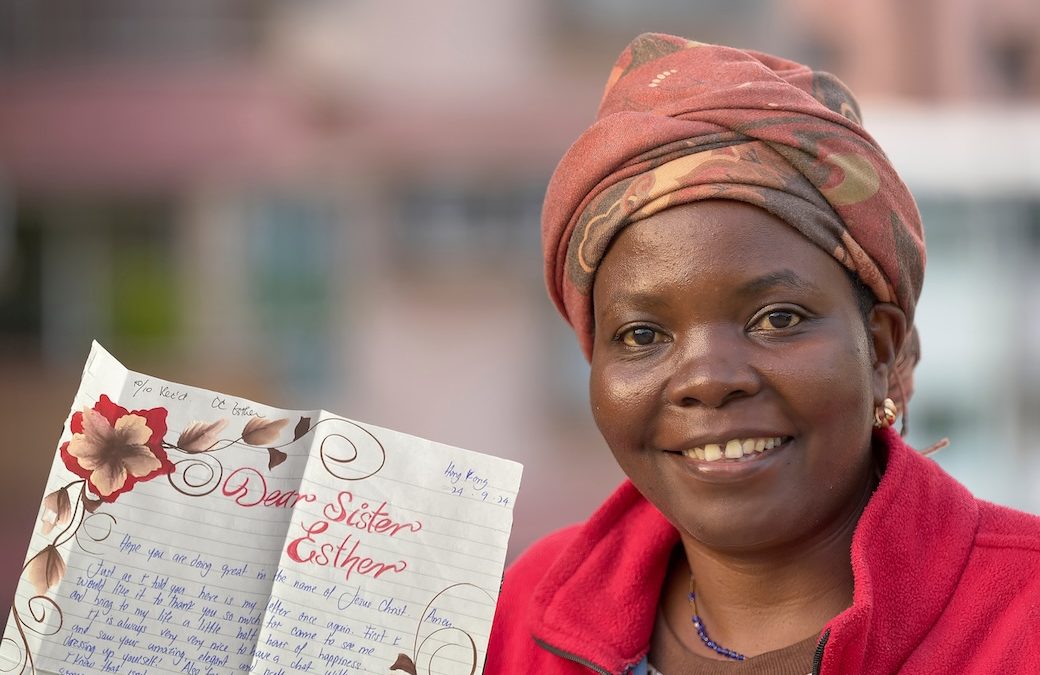 10/10 Rec'd CC Esther
Hong Kong
24.9.24
Dear Sister
Esther
Hope you are doing great in the name of Jesus Christ. Amen
Just as I told you here is my letter once again. First I
would like it to thank you so much for came to see me
and bring to my life a little bait hours of happiness.
It is always very very nice to have a chat with
and saw your amazing, elegant and
dressing up yourself! Also
I know that